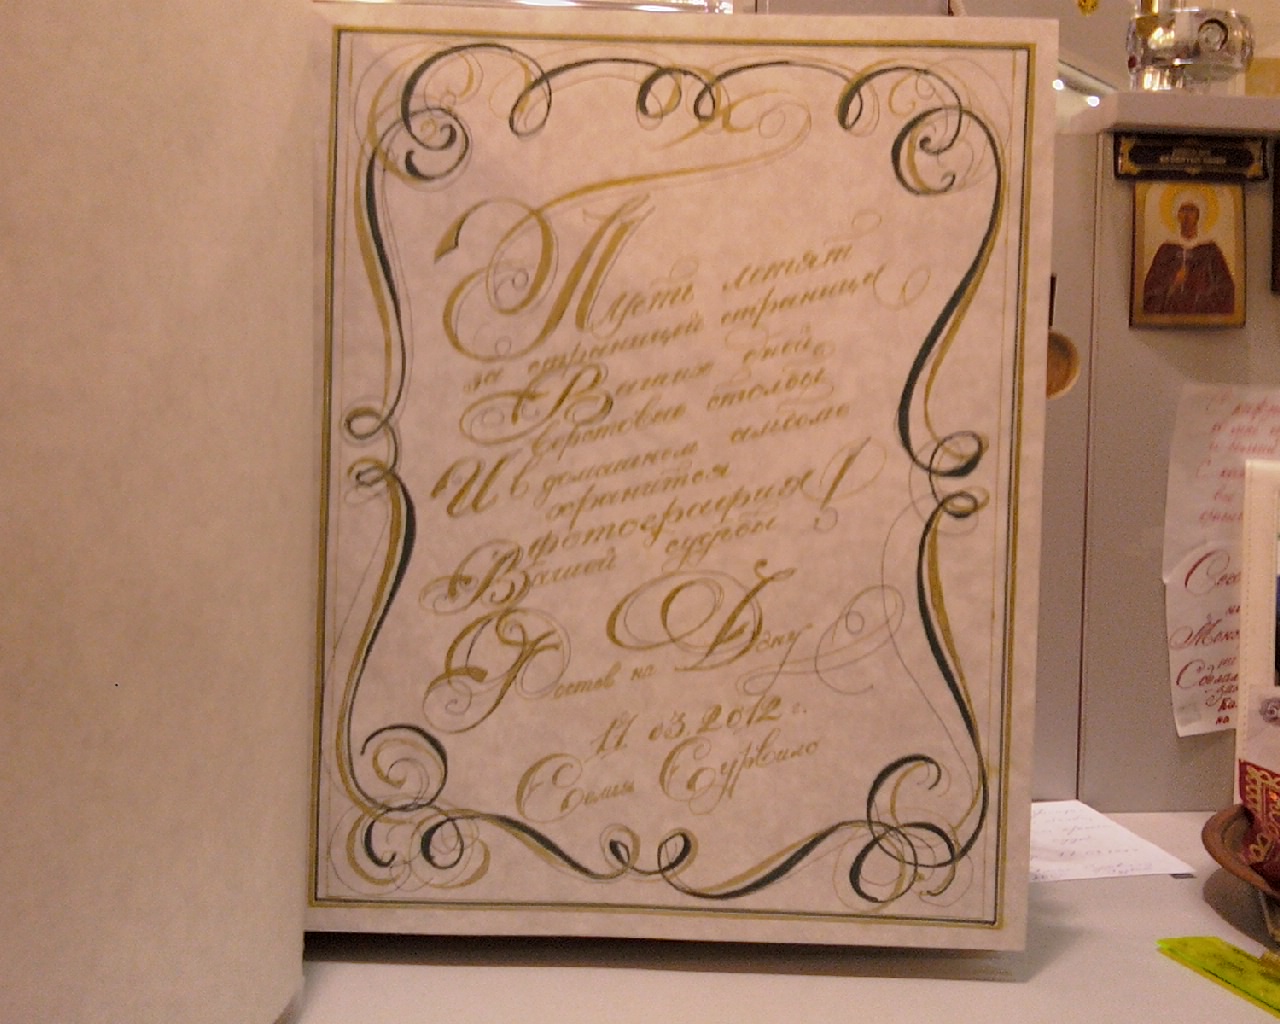 Пусть летят
за страницей страница
Ваших дней
верстовые столбы
И в домашнем альбоме
хранится
фотография!
Вашей судьбы
Ростов на Дону
11 03.2012 г.
Семья Сурвило